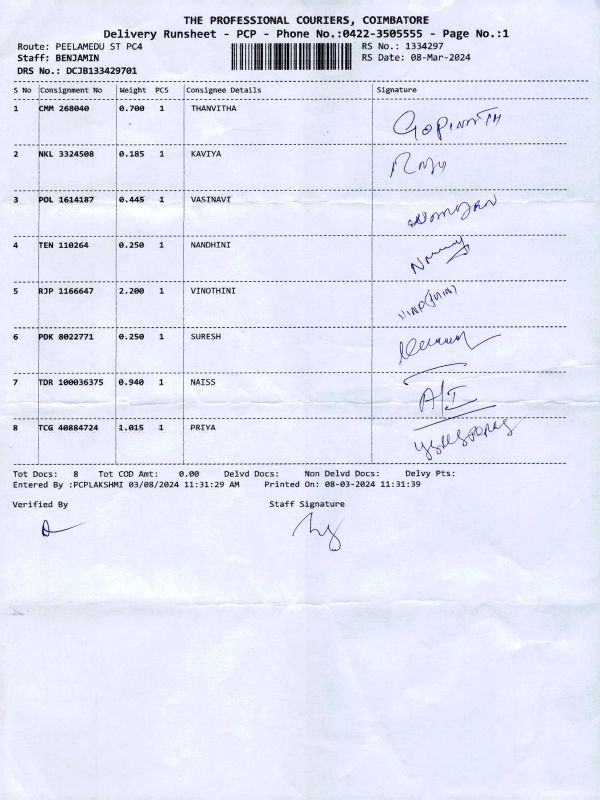 THE PROFESSIONAL COURIERS, COIMBATORE
Delivery Runsheet - PCP - Phone No.:0422-3505555 - Page No.:1
Route: PEELAMEDU ST PC4 RS No.: 1334297
Staff: BENJAMIN RS Date: 08-Mar-2024
DRS No.: DCJB133429701
S No Consignment No Weight PCS Consignee Details Signature
1 CMM 268040 0.700 1 THANVITHA GOPINATH
2 NKL 3324508 0.185 1 KAVIYA
3 POL 1614187 0.445 1 VASINAVI
4 TEN 110264 0.250 1 NANDHINI
5 RJP 1166647 2.200 1 VINOTHINI
6 PDK 8022771 0.250 1 SURESH
7 TDR 100036375 0.940 1 NAISS A/I
8 TCG 40884724 1.015 1 PRIYA
Tot Docs: 8 Tot COD Amt: 0.00 Delvd Docs: Non Delvd Docs: Delvy Pts:
Entered By :PCPLAKSHMI 03/08/2024 11:31:29 AM Printed On: 08-03-2024 11:31:39
Verified By Staff Signature